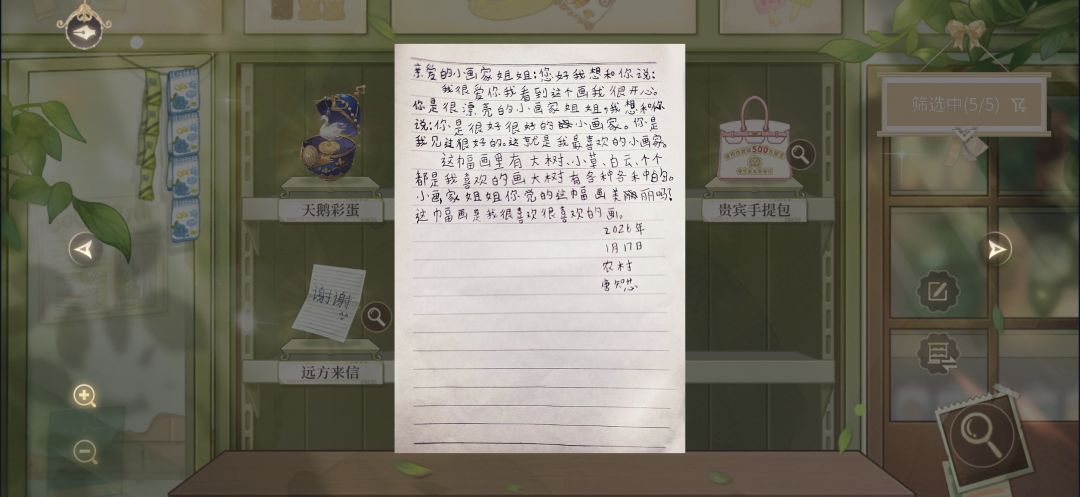 亲爱的小画家姐姐：您好我想和你说：
我很爱你我看到这个画我很开心。
你是很漂亮的小画家姐姐，我想和你
说：你是很好很好的小画家。你是
我见过很好的。这就是我最喜欢的小画家。
这幅画里有大树、小草、白云、个个
都是我喜欢的画大树有各种各木中白的。
小画家姐姐你觉的这幅画美丽吗？
这幅画是我很喜欢很喜欢的画。
2026年
1月17日
农村
筛选中(5/5)
天鹅彩蛋
500
贵宾手提包
谢谢
远方来信